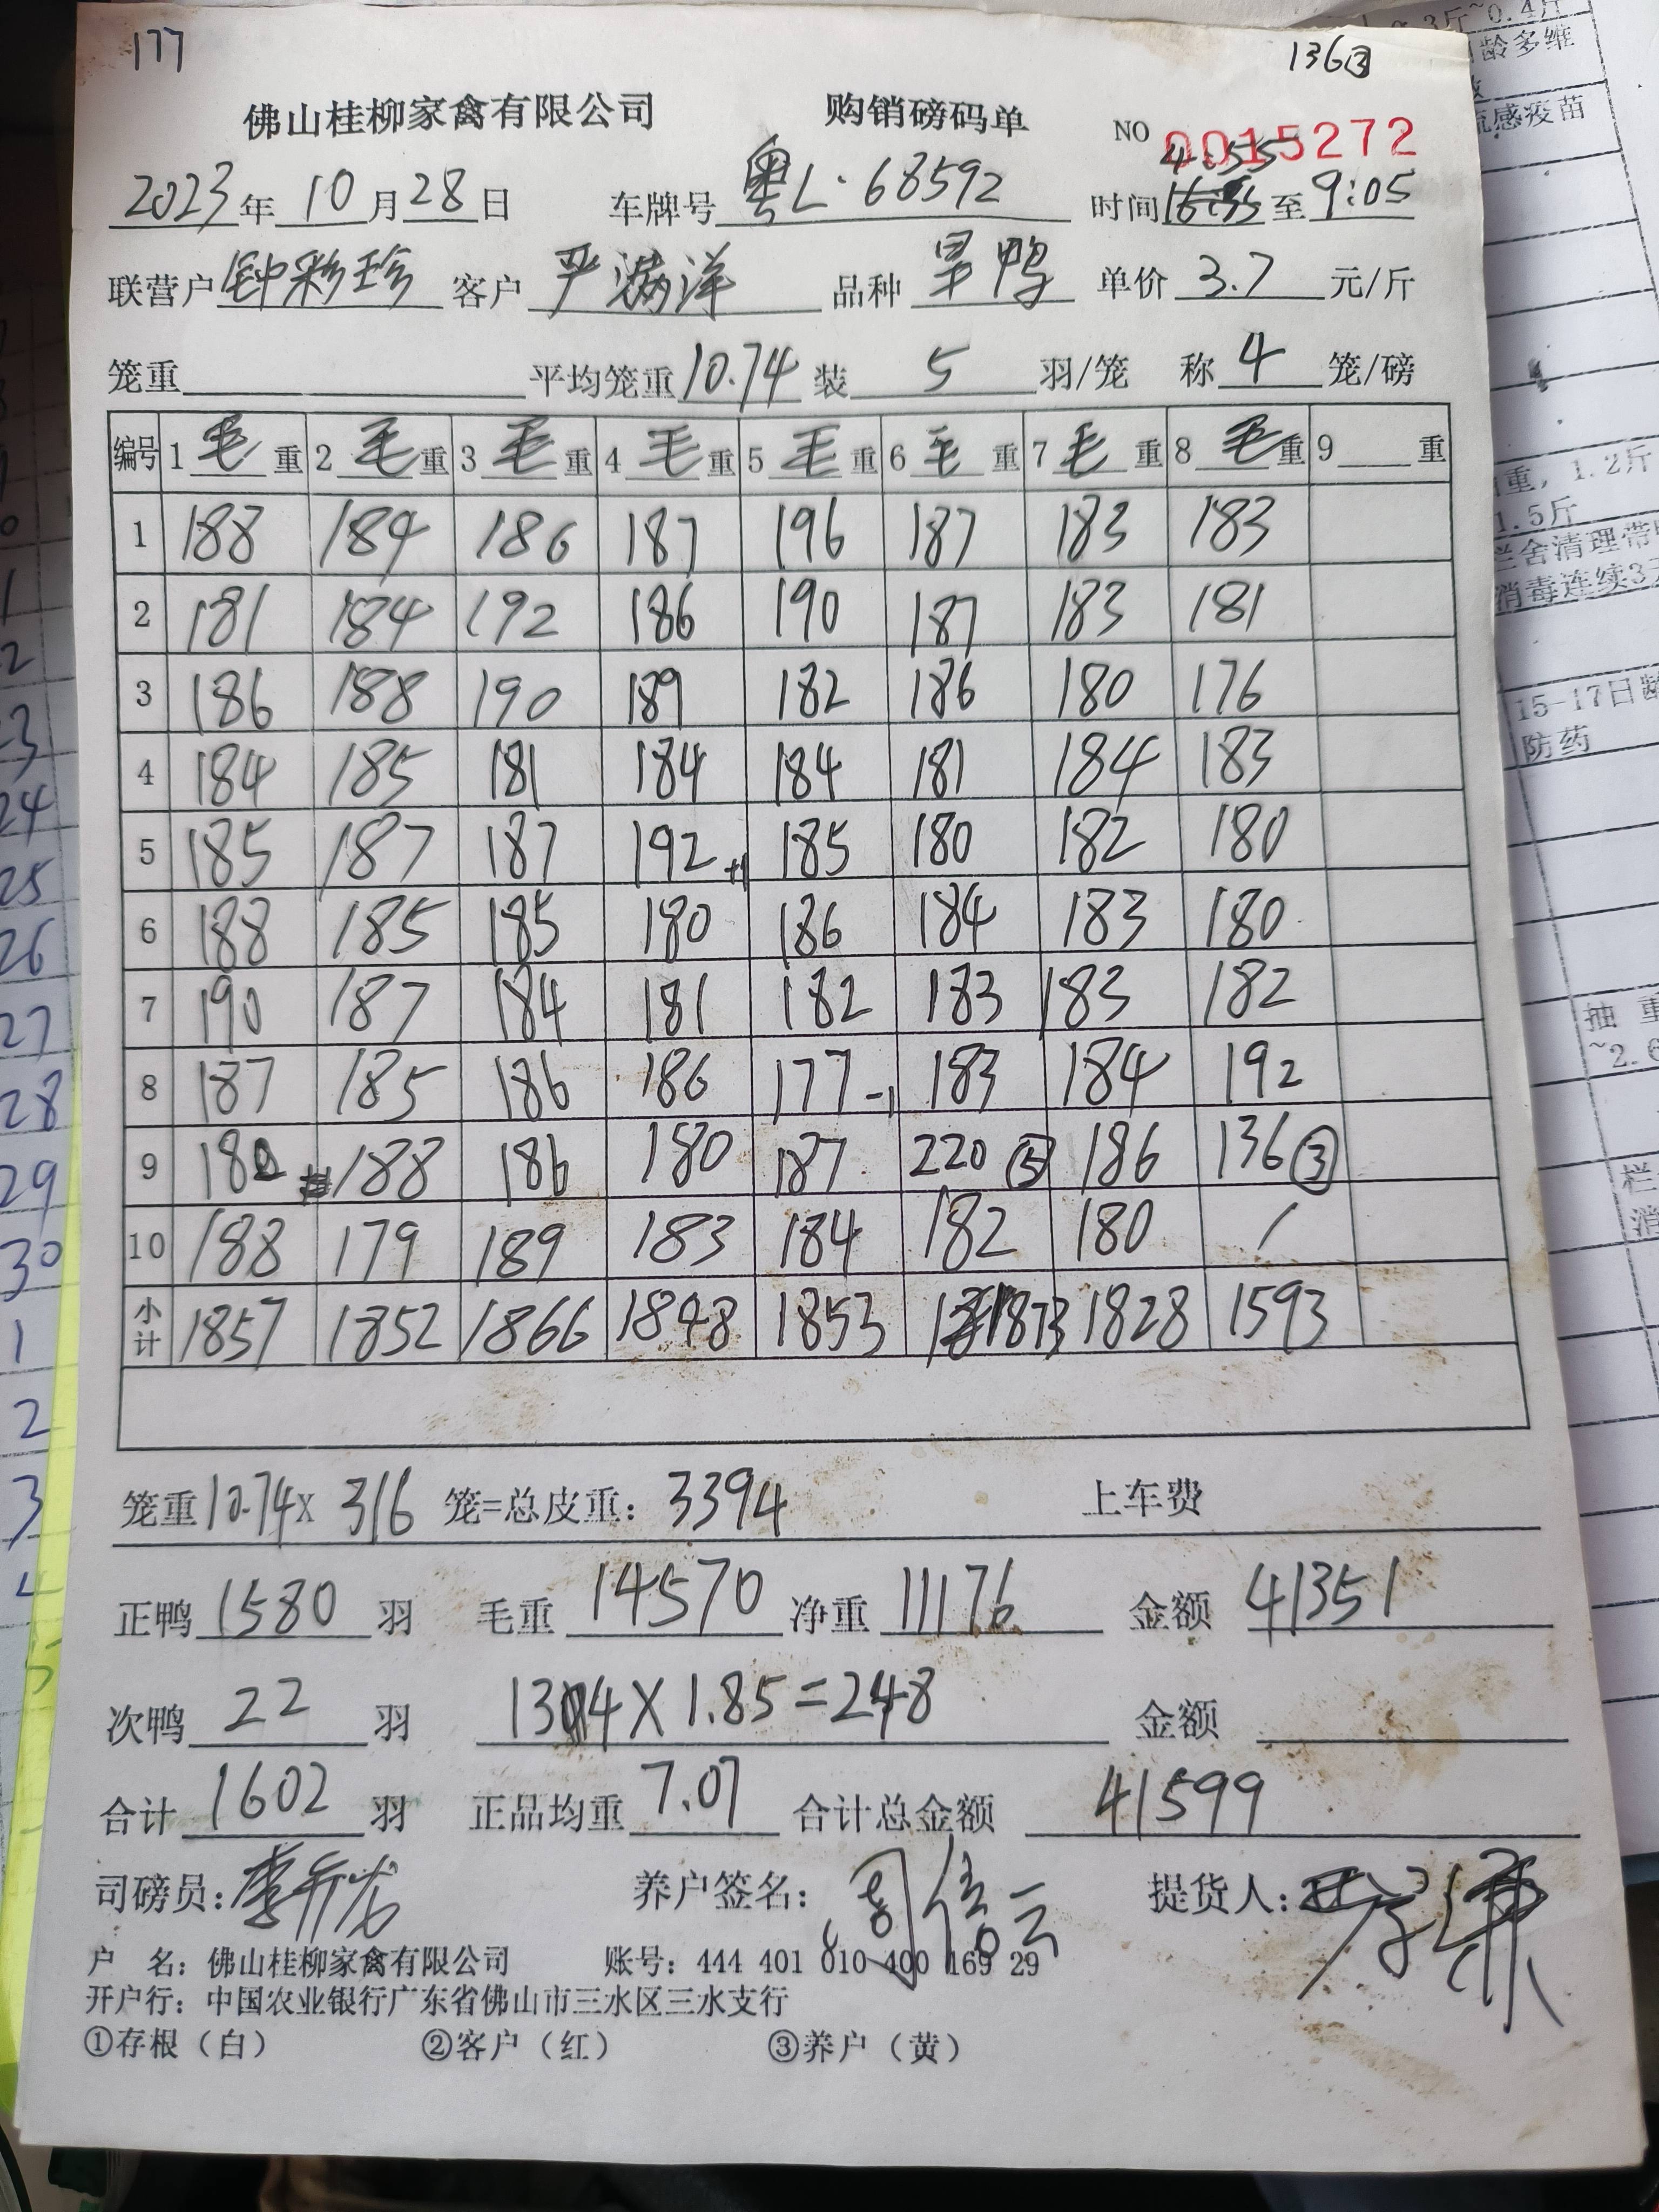 177
136③
佛山桂柳家禽有限公司 购销磅码单 NO 0015272
4:55
2023年10月28日 车牌号 粤L·68592 时间 至9:05
联营户 钟彩珍 客户 严满洋 品种 旱鸭 单价 3.7 元/斤
笼重 平均笼重 10.74 装 5 羽/笼 称 4 笼/磅
编号 1 毛 重 2 毛 重 3 毛 重 4 毛 重 5 毛 重 6 毛 重 7 毛 重 8 毛 重 9 重
1 188 184 186 187 196 187 183 183
2 181 184 192 186 190 187 183 181
3 186 188 190 189 182 186 180 176
4 184 185 181 184 184 181 184 183
5 185 187 187 192 +1 185 180 182 180
6 188 185 185 180 186 184 183 180
7 190 187 184 181 182 183 183 182
8 187 185 186 186 177 -1 183 184 192
9 180 188 186 180 187 220 ⑤ 186 136 ③
10 188 179 189 183 184 182 180 /
小计 1857 1852 1866 1848 1853 1873 1828 1593
笼重 10.74 x 316 笼=总皮重: 3394 上车费
正鸭 1580 羽 毛重 14570 净重 11176 金额 41351
次鸭 22 羽 134 X 1.85 = 248 金额
合计 1602 羽 正品均重 7.07 合计总金额 41599
司磅员: 养户签名: 周信云 提货人:
户 名: 佛山桂柳家禽有限公司 账号: 444 401 010 400 169 29
开户行: 中国农业银行广东省佛山市三水区三水支行
①存根（白） ②客户（红） ③养户（黄）
3斤~0.4斤
龄多维
流感疫苗
重, 1.2斤
1.5斤
栏舍清理带
消毒连续3
15-17日龄
防药
抽 重
~2.6
栏
消
24
25
26
27
28
29
30
1
2
3
4